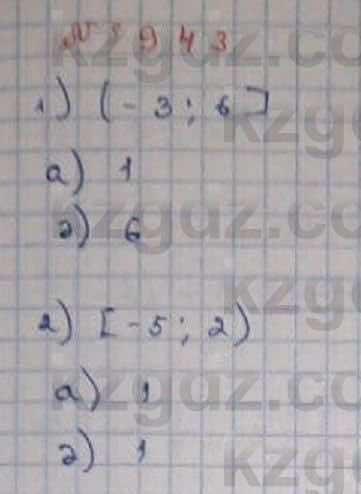 № 943
1) (-3; 6]
а) 1
ә) 6
2) [-5; 2)
а) 1
ә) 1
kzgdz.com